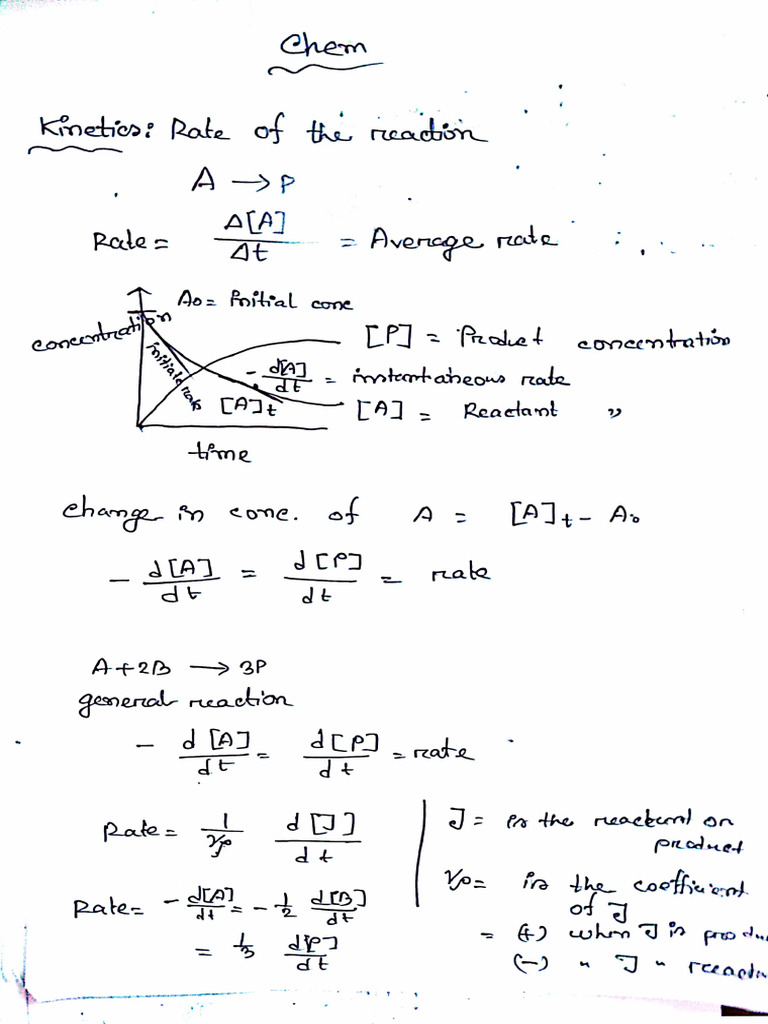 Chem
Kinetics: Rate of the reaction
A → P
Rate = Δ[A]/Δt = Average rate
A₀ = Initial conc
concentration
[P] = Product concentration
initial rate
-d[A]/dt = instantaneous rate
[A]t
[A] = Reactant "
time
change in conc. of A = [A]t - A₀
- d[A]/dt = d[P]/dt = rate
A+2B → 3P
general reaction
- d[A]/dt = d[P]/dt = rate
Rate = 1/νⱼ d[J]/dt
J = is the reactant or
product
νⱼ = is the coefficient
of J
= (+) when J is produ
(-) " J " reacta
Rate = -d[A]/dt = -1/2 d[B]/dt
= 1/3 d[P]/dt